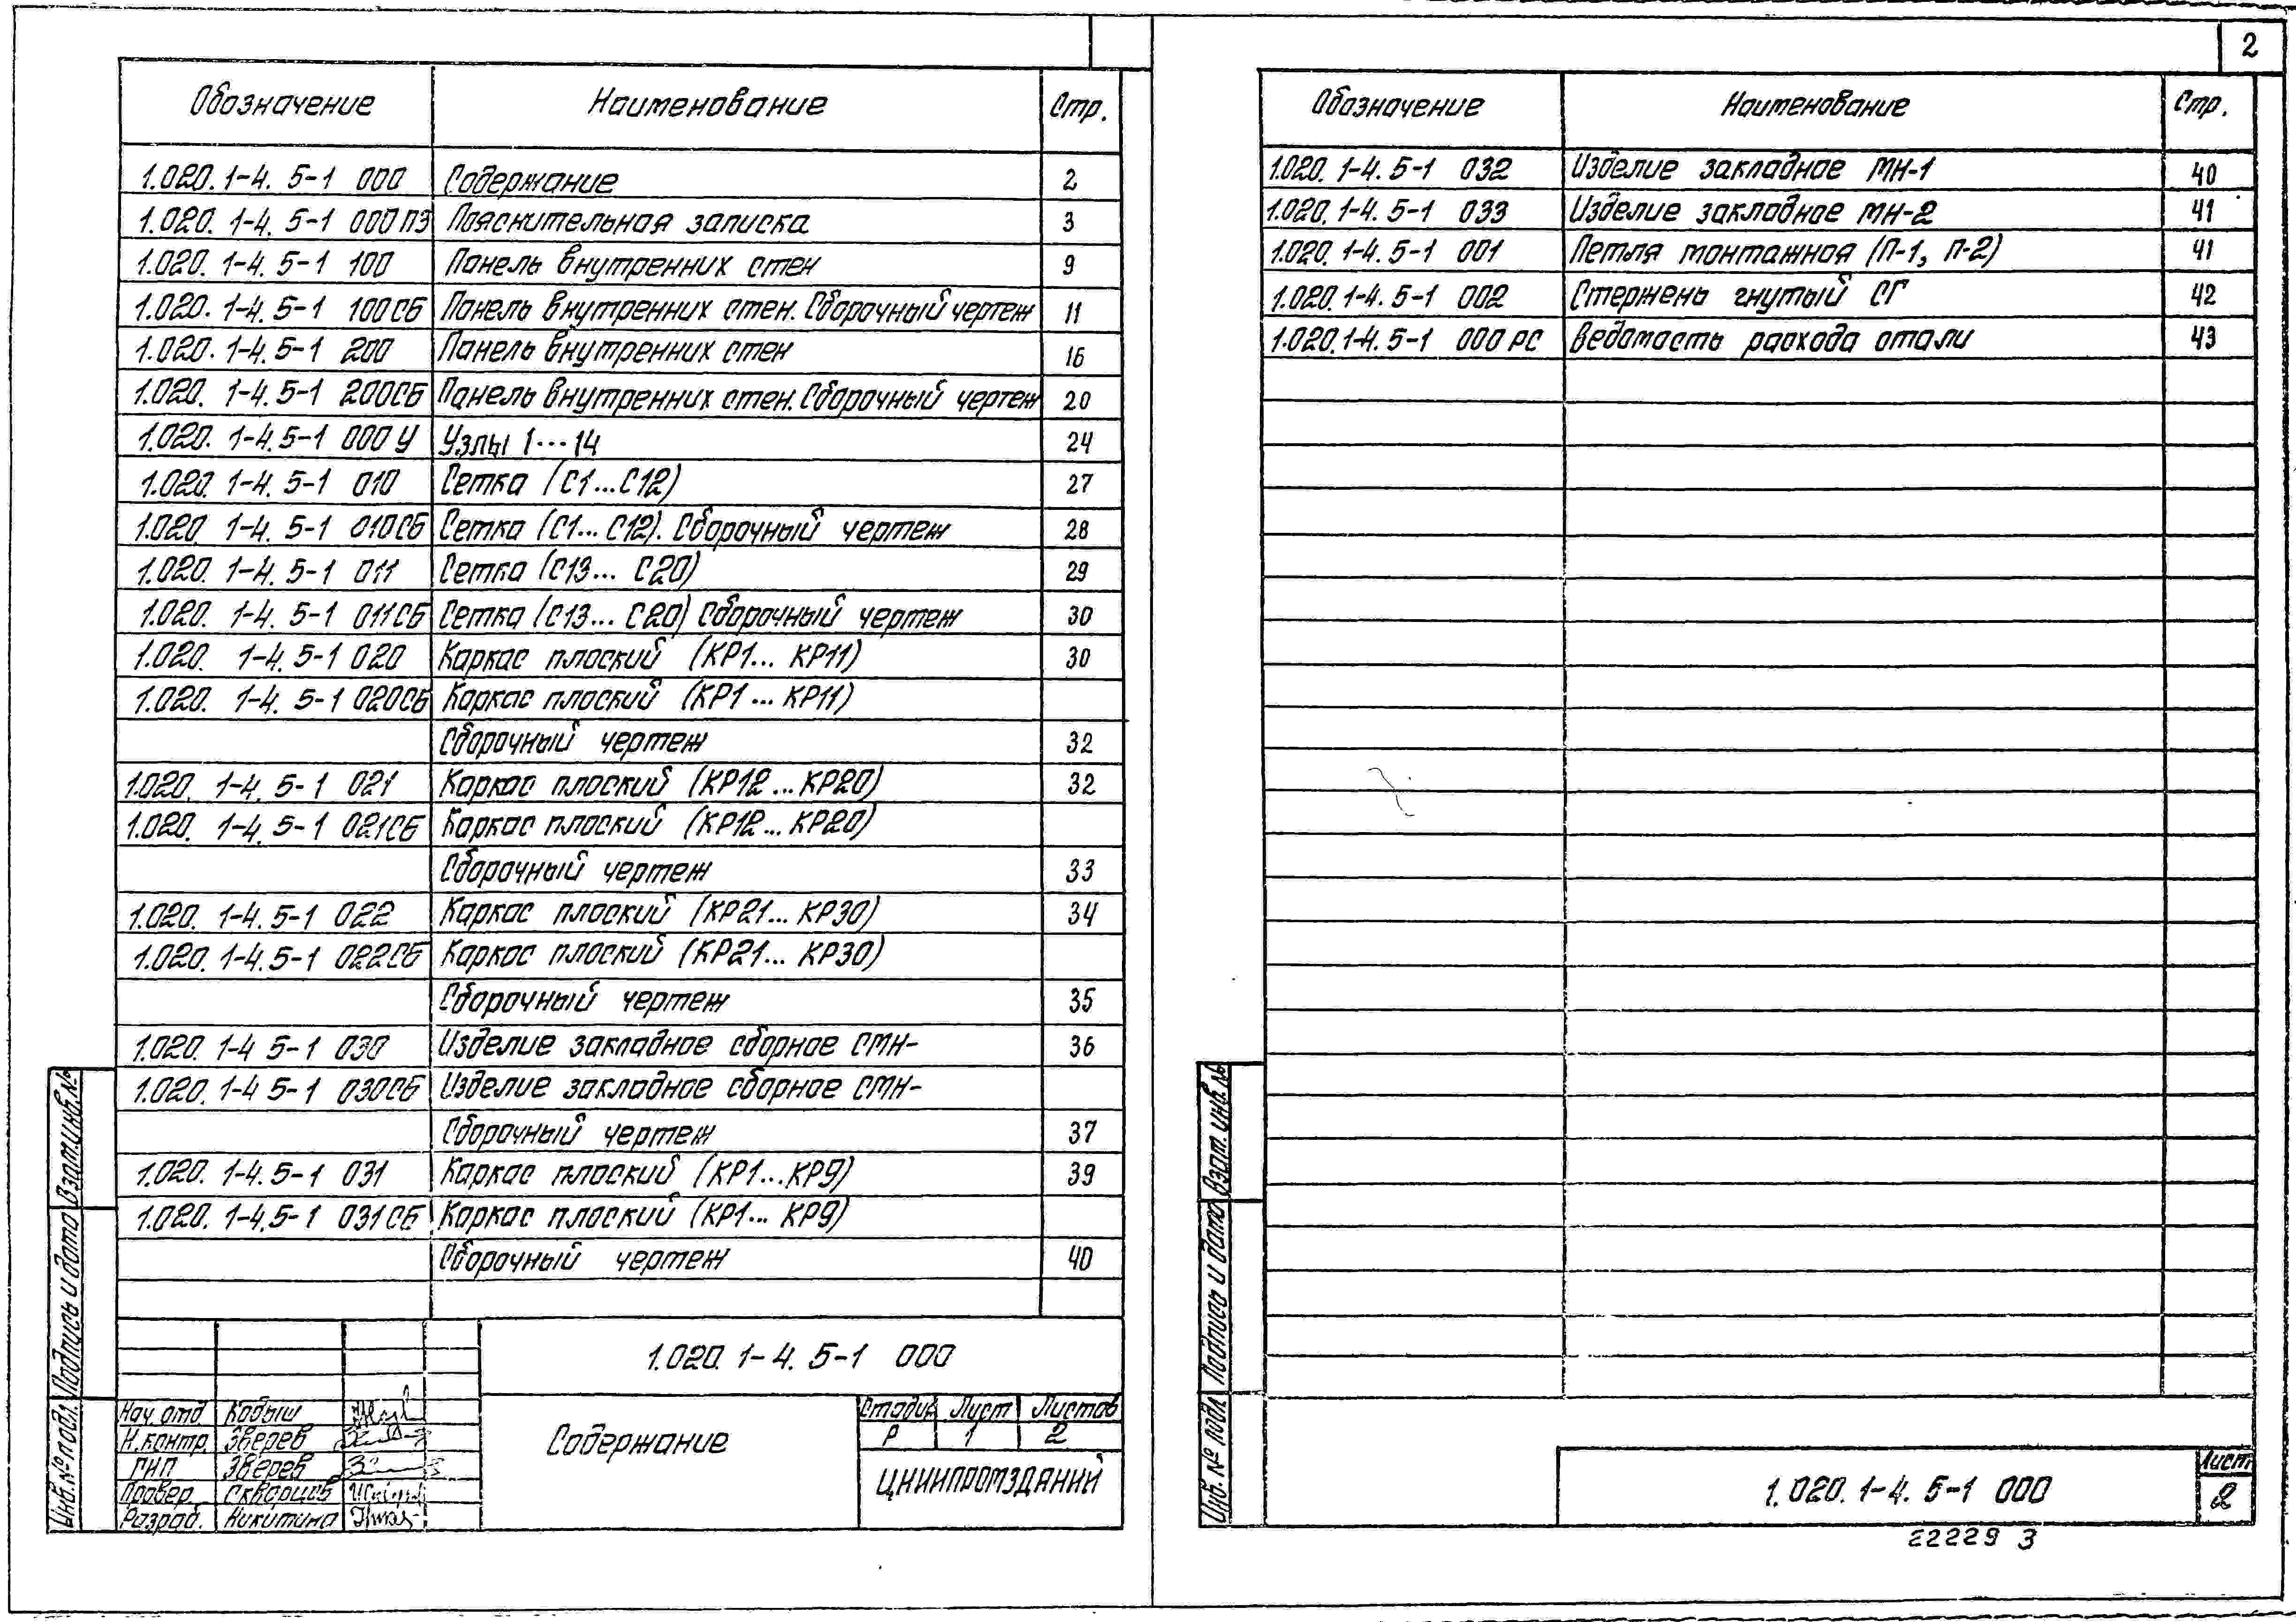 2
Обозначение Наименование Стр.
1.020.1-4. 5-1 000 Содержание 2
1.020. 1-4. 5-1 000ПЗ Пояснительная записка 3
1.020. 1-4. 5-1 100 Панель внутренних стен 9
1.020. 1-4. 5-1 100СБ Панель внутренних стен. Сборочный чертеж 11
1.020. 1-4. 5-1 200 Панель внутренних стен 16
1.020. 1-4. 5-1 200СБ Панель внутренних стен. Сборочный чертеж 20
1.020. 1-4. 5-1 000У Узлы 1...14 24
1.020. 1-4. 5-1 010 Сетка (С1...С12) 27
1.020 1-4. 5-1 010СБ Сетка (С1... С12). Сборочный чертеж 28
1.020. 1-4. 5-1 011 Сетка (С13... С20) 29
1.020. 1-4. 5-1 011СБ Сетка (С13... С20) Сборочный чертеж 30
1.020. 1-4. 5-1 020 Каркас плоский (КР1... КР11) 30
1.020. 1-4. 5-1 020СБ Каркас плоский (КР1 ... КР11)
Сборочный чертеж 32
1.020. 1-4. 5-1 021 Каркас плоский (КР12 ... КР20) 32
1.020. 1-4. 5-1 021СБ Каркас плоский (КР12 ... КР20)
Сборочный чертеж 33
1.020. 1-4. 5-1 022 Каркас плоский (КР21... КР30) 34
1.020. 1-4. 5-1 022СБ Каркас плоский (КР21... КР30)
Сборочный чертеж 35
1.020. 1-4 5-1 030 Изделие закладное сборное СМН- 36
1.020. 1-4 5-1 030СБ Изделие закладное сборное СМН-
Сборочный чертеж 37
1.020. 1-4. 5-1 031 Каркас плоский (КР1...КР9) 39
1.020. 1-4. 5-1 031СБ Каркас плоский (КР1... КР9)
Сборочный чертеж 40
1.020. 1-4. 5-1 000
Содержание
Стадия Лист Листов
Р 1 2
ЦНИИПРОМЗДАНИЙ
Нач. отд. Кодыш
Н.контр. Зверев
ГИП Зверев
Провер. Скворцов
Разраб. Никитина
Инв. № подл. Подпись и дата Взам. инв. №
Обозначение Наименование Стр.
1.020. 1-4. 5-1 032 Изделие закладное МН-1 40
1.020. 1-4. 5-1 033 Изделие закладное МН-2 41
1.020. 1-4. 5-1 001 Петля монтажная (П-1, П-2) 41
1.020. 1-4. 5-1 002 Стержень гнутый СГ 42
1.020. 1-4. 5-1 000 РС Ведомость расхода стали 43
Инв. № подл Подпись и дата Взам. инв. №
1.020. 1-4. 5-1 000
Лист
2
22229 3